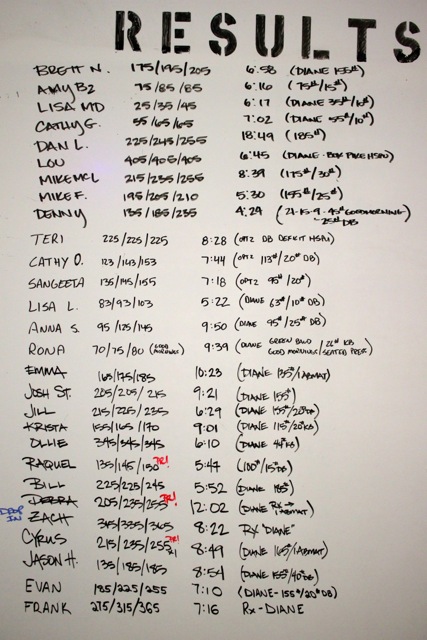 RESULTS
BRETT N. 175/195/205 6:58 (DIANE 155#)
AMY B2 75/85/85 6:16 (75#/15#)
LISA MD 25/35/45 6:17 (DIANE 35#/10#)
CATHY G. 55/65/65 7:02 (DIANE 55#/10#)
DAN L. 225/245/255 18:49 (185#)
LOU 405/405/405 6:45 (DIANE - BOX PIKE HSPU)
MIKE MCL 215/235/255 8:39 (175#/30#)
MIKE F. 195/205/210 5:30 (155#/25#)
DENNY 135/185/235 4:29 (21-15-9-45# GOODMORNING/
25# DB
TERI 225/225/225 8:28 (OPT2 DB DEFICIT HSPU)
CATHY O. 123/143/153 7:44 (OPT2 113#/20# DB)
SANGEETA 135/145/155 7:18 (OPT2 95#/20#)
LISA L. 83/93/103 5:22 (DIANE 63#/10# DB)
ANNA S. 95/125/145 9:50 (DIANE 95#/25# DB)
RONA 70/75/80 (GOOD MORNINGS) 9:39 (DIANE GREEN BAND / 26# KB
GOOD MORNINGS/SEATED PRESS)
EMMA 165/175/185 10:23 (DIANE 135#/1 ABMAT)
JOSH ST. 205/205/215 9:21 (DIANE 155#)
JILL 215/225/235 6:29 (DIANE 155#/20# DB)
KRISTA 155/165/170 9:01 (DIANE 115#/20# KB)
OLLIE 345/345/345 6:10 (DIANE 44# KB)
RAQUEL 135/145/150 PR! 5:44 (100#/15# DB)
BILL 225/225/245 5:52 (DIANE 185#)
DEBRA 205/235/255 PR! 12:02 (DIANE RX → 1 ABMAT)
DROP IN ZACH 345/355/365 8:22 RX "DIANE"
CYRUS 215/235/255 PR! 8:49 (DIANE 165#/1 ABMAT)
JASON H. 135/185/185 8:54 (DIANE 155#/40# DB)
EVAN 185/225/255 7:10 (DIANE - 155#/20# DB)
FRANK 275/315/365 7:16 RX-DIANE